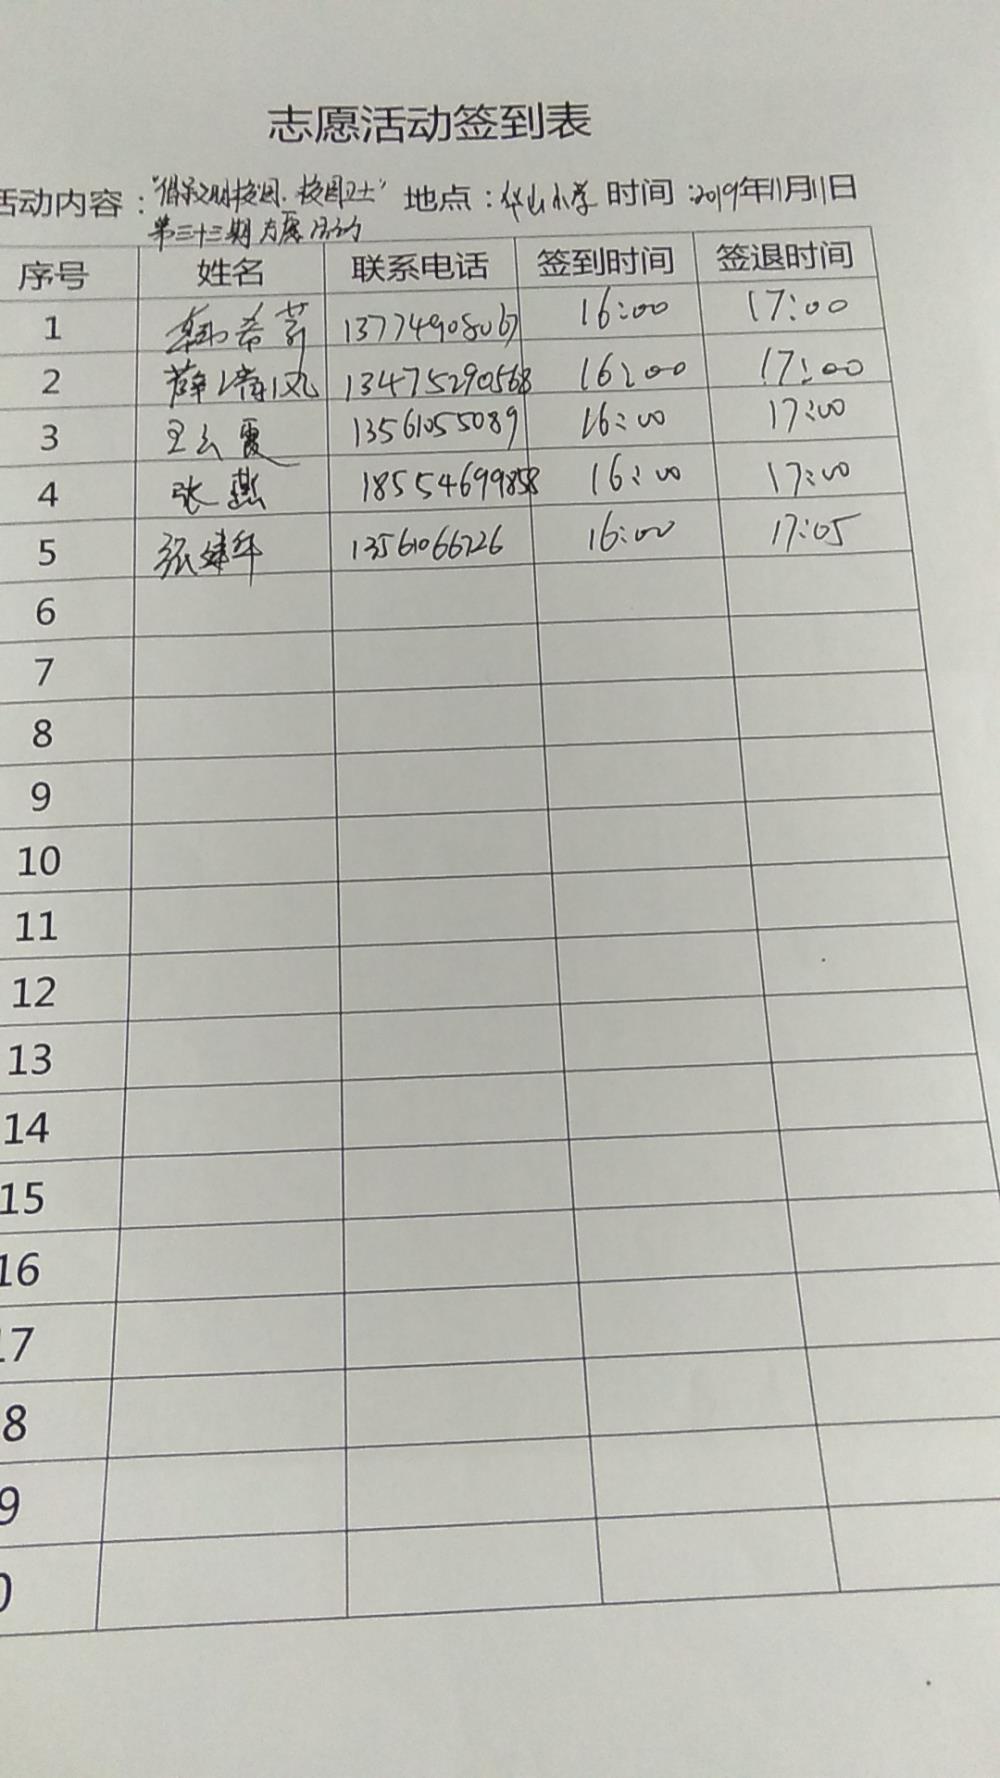 志愿活动签到表
活动内容："倡文明校园、校园卫士" 地点：华山小学 时间：2019年11月11日
第三十三期志愿活动
序号 姓名 联系电话 签到时间 签退时间
1 韩希芹 13774908067 16:00 17:00
2 薛清凤 13475290568 16:00 17:00
3 王云霞 13561055089 16:00 17:00
4 张燕 18554699858 16:00 17:00
5 张建华 13561066726 16:00 17:05
6
7
8
9
10
11
12
13
14
15
16
17
8
9
0